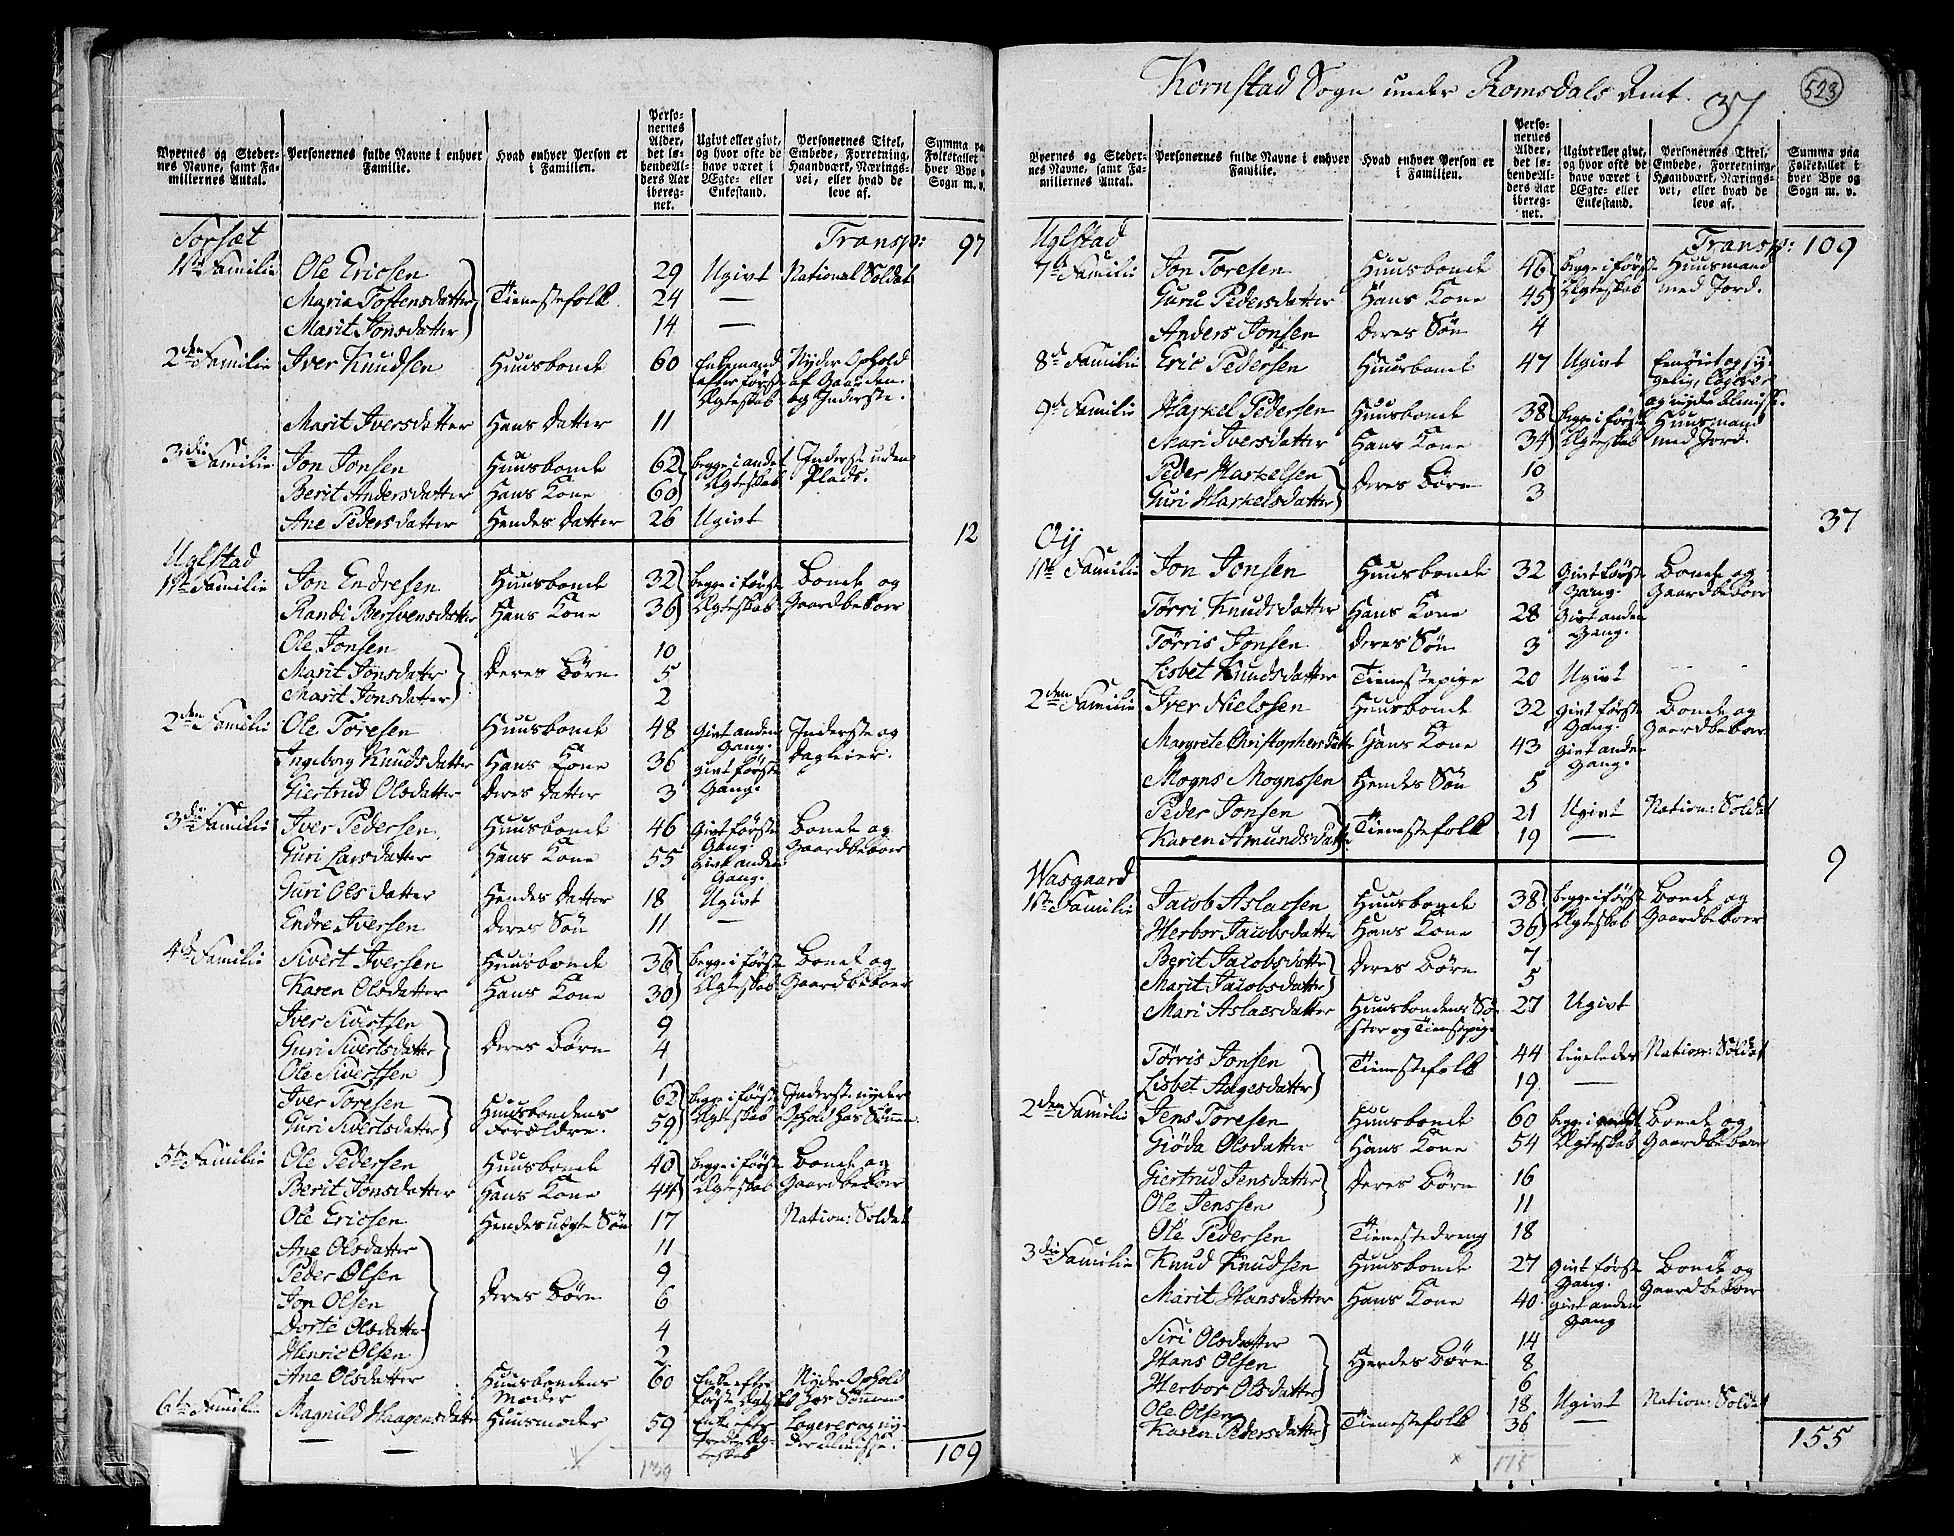 Byernes og Steder- nes Navne, samt Fa- miliernes Antal. | Personernes fulde Navne i enhver Familie. | Hvad enhver Person er i Familien. | Perso- nernes Alder, det lø- bende Al- ders Aar ibereg- net. | Ugivt eller givt, og hvor ofte de have været i Ægte- eller Enkestand. | Personernes Titel, Embede, Forretning, Haandværk, Nærings- vei, eller hvad de leve af. | Summa paa Folketallet i hver Bye og Sogn m. v.
Sorsæt Transp: 97
1ste Familie Ole Ericsen 29 Ugivt National Soldat
Maria Tostensdatter Tienestefolk 24 —
Marit Jonsdatter 14 —
2den Familie Iver Knudsen Huusbonde 60 Enkemand Nyder Ophold
efter første af Gaarden
Ægteskab og Inderste.
Marit Iversdatter Hans Datter 11
3die Familie Jon Jonsen Huusbonde 62 begge i andet Inderste uden
Berit Andersdatter Hans Kone 60 Ægteskab Plads.
Ane Pedersdatter Hendes Datter 26 Ugivt
12
Uglstad
1ste Familie Jon Endresen Huusbonde 32 begge i første Bonde og
Randi Bersvensdatter Hans Kone 36 Ægteskab Gaardbeboer
Ole Jonsen 10
Marit Jonsdattr Deres Børn 5
Marit Jonsdatter 2
2den Familie Ole Toresen Huusbonde 48 Givt anden Inderste og
Gang. Dagleier.
Ingeborg Knudsdatter Hans Kone 36 givt første
Giertrud Olsdatter Deres Datter 3 Gang.
3die Familie Iver Pedersen Huusbonde 46 Givt første Bonde og
Gang. Gaardbeboer
Guri Larsdatter Hans Kone 55 Givt anden
Gang.
Guri Olsdatter Hendes Datter 18 Ugivt
Endre Iversen Deres Søn 11 —
4de Familie Sivert Iversen Huusbonde 36 begge i første Bonde og
Karen Olsdatter Hans Kone 30 Ægteskab Gaardbeboer
Iver Sivertsen 9
Guri Sivertsdatter Deres Børn 4
Ole Sivertsen 1
Iver Toresen Huusbondens 62 begge i første Inderste nyder
Guri Sivertsdatter Forældre. 59 Ægteskab Ophold hos Sønnen
5te Familie Ole Pedersen Huusbonde 40 begge i første Bonde og
Berit Jonsdatter Hans Kone 44 Ægteskab Gaardbeboer
Ole Ericsen Hendes uægte Søn 17 Nation: Soldat
Ane Olsdatter 11
Peder Olsen 9
Jon Olsen Deres Børn 6
Dorte Olsdatter 4
Henric Olsen 2
Ane Olsdatter Huusbondens 60 Enke efter Nyder Ophold
Moder første hos Sønnen
6te Familie Magnild Haagensdatter Huusmoder 59 Enke efter
— — tredie Æg-
teskab
109
Kornstad Sogn under Romsdals Amt. 37 523
Byernes og Steder- nes Navne, samt Fa- miliernes Antal. | Personernes fulde Navne i enhver Familie. | Hvad enhver Person er i Familien. | Perso- nernes Alder, det lø- bende Al- ders Aar ibereg- net. | Ugivt eller givt, og hvor ofte de have været i Ægte- eller Enkestand. | Personernes Titel, Embede, Forretning, Haandværk, Nærings- vei, eller hvad de leve af. | Summa paa Folketallet i hver Bye og Sogn m. v.
Uglstad Transp: 109
7de Familie Jon Toresen Huusbonde 46 begge i første Huusmand
Guru Pedersdatter Hans Kone 45 Ægteskab med Jord.
Anders Jonsen Deres Søn 4
8de Familie Eric Pedersen Huusbonde 47 Ugivt
9de Familie Harkel Pedersen Huusbonde 38 begge i første Huusmand
Mari Iversdatter Hans Kone 34 Ægteskab med Jord.
Peder Harkelsen 10
Guri Harkelsdatter Deres Børn 3
37
Oÿ
1ste Familie Jon Jonsen Huusbonde 32 Givt første Bonde og
Gang. Gaardbeboer
Torri Knudsdatter Hans Kone 28 Givt anden
Gang.
Tørris Jonsen Deres Søn 3
Lisbet Knudsdatter Tienestepige 20 Ugivt
2den Familie Iver Nielssen Huusbonde 32 Givt første Bonde og
Gang. Gaardbeboer
Margrete Christophersdattr Hans Kone 43 Givt anden
Gang.
Mogns Mognssen Hendes Søn 5
Peder Jonsen 21 Ugivt Nation: Soldat
Karen Amundsdattr Tienestefolk 19 —
9
Wasgaard
1ste Familie Jacob Aslacsen Huusbonde 38 begge i første Bonde og
Herbor Jacobsdatter Hans Kone 36 Ægteskab Gaardbeboer
Berit Jacobsdatter 7
Marit Jacobsdatter Deres Børn 5
Mari Aslacsdatter Huusbondens Sø- 27 Ugivt
ster og Tienestepige
Tørris Jonsen 44 Ligeledes Nation: Soldat
Lisbet Aagesdatter Tienestefolk 19 —
2den Familie Jens Toresen Huusbonde 60 begge i andet Bonde og
Giøda Olsdatter Hans Kone 54 Ægteskab Gaardbeboer
Giertrud Jensdatter 16
Ole Jenssen Deres Børn 11
Ole Pedersen Tienestedreng 18
3die Familie Knud Knudsen Huusbonde 27 Givt første Bonde og
Gang. Gaardbeboer
Marit Hansdatter Hans Kone 40 Givt anden
Gang
Siri Olsdatter 14
Hans Olsen Hendes Børn 8
Herbor Olsdatter 6
Ole Olsen 18 Ugivt Nation: Soldat
Karen Pedersdatter Tienestefolk 36 —
155
175